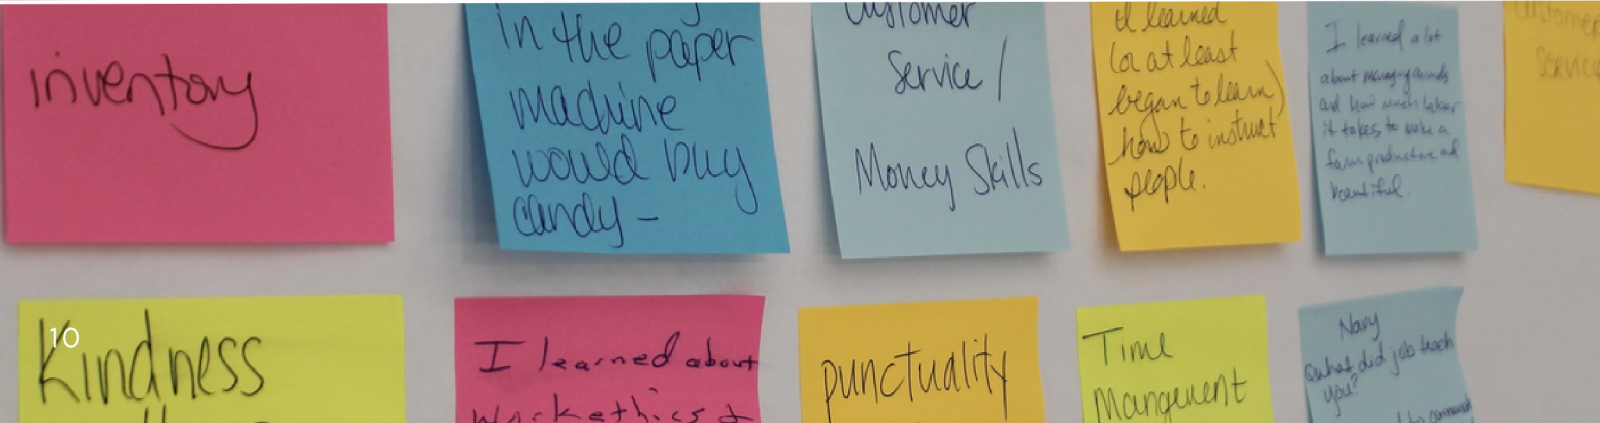 inventory
in the paper
machine
would buy
candy -
Customer
Service /
Money Skills
I learned
(or at least
began to learn)
how to instruct
people.
I learned a lot
about managing
and how much labor
it takes to make a
farm productive and
beautiful.
Customer
Service
10
Kindness
I learned about
work ethics &
punctuality
Time
Mangement
Navy
what did job teach
you?
to command